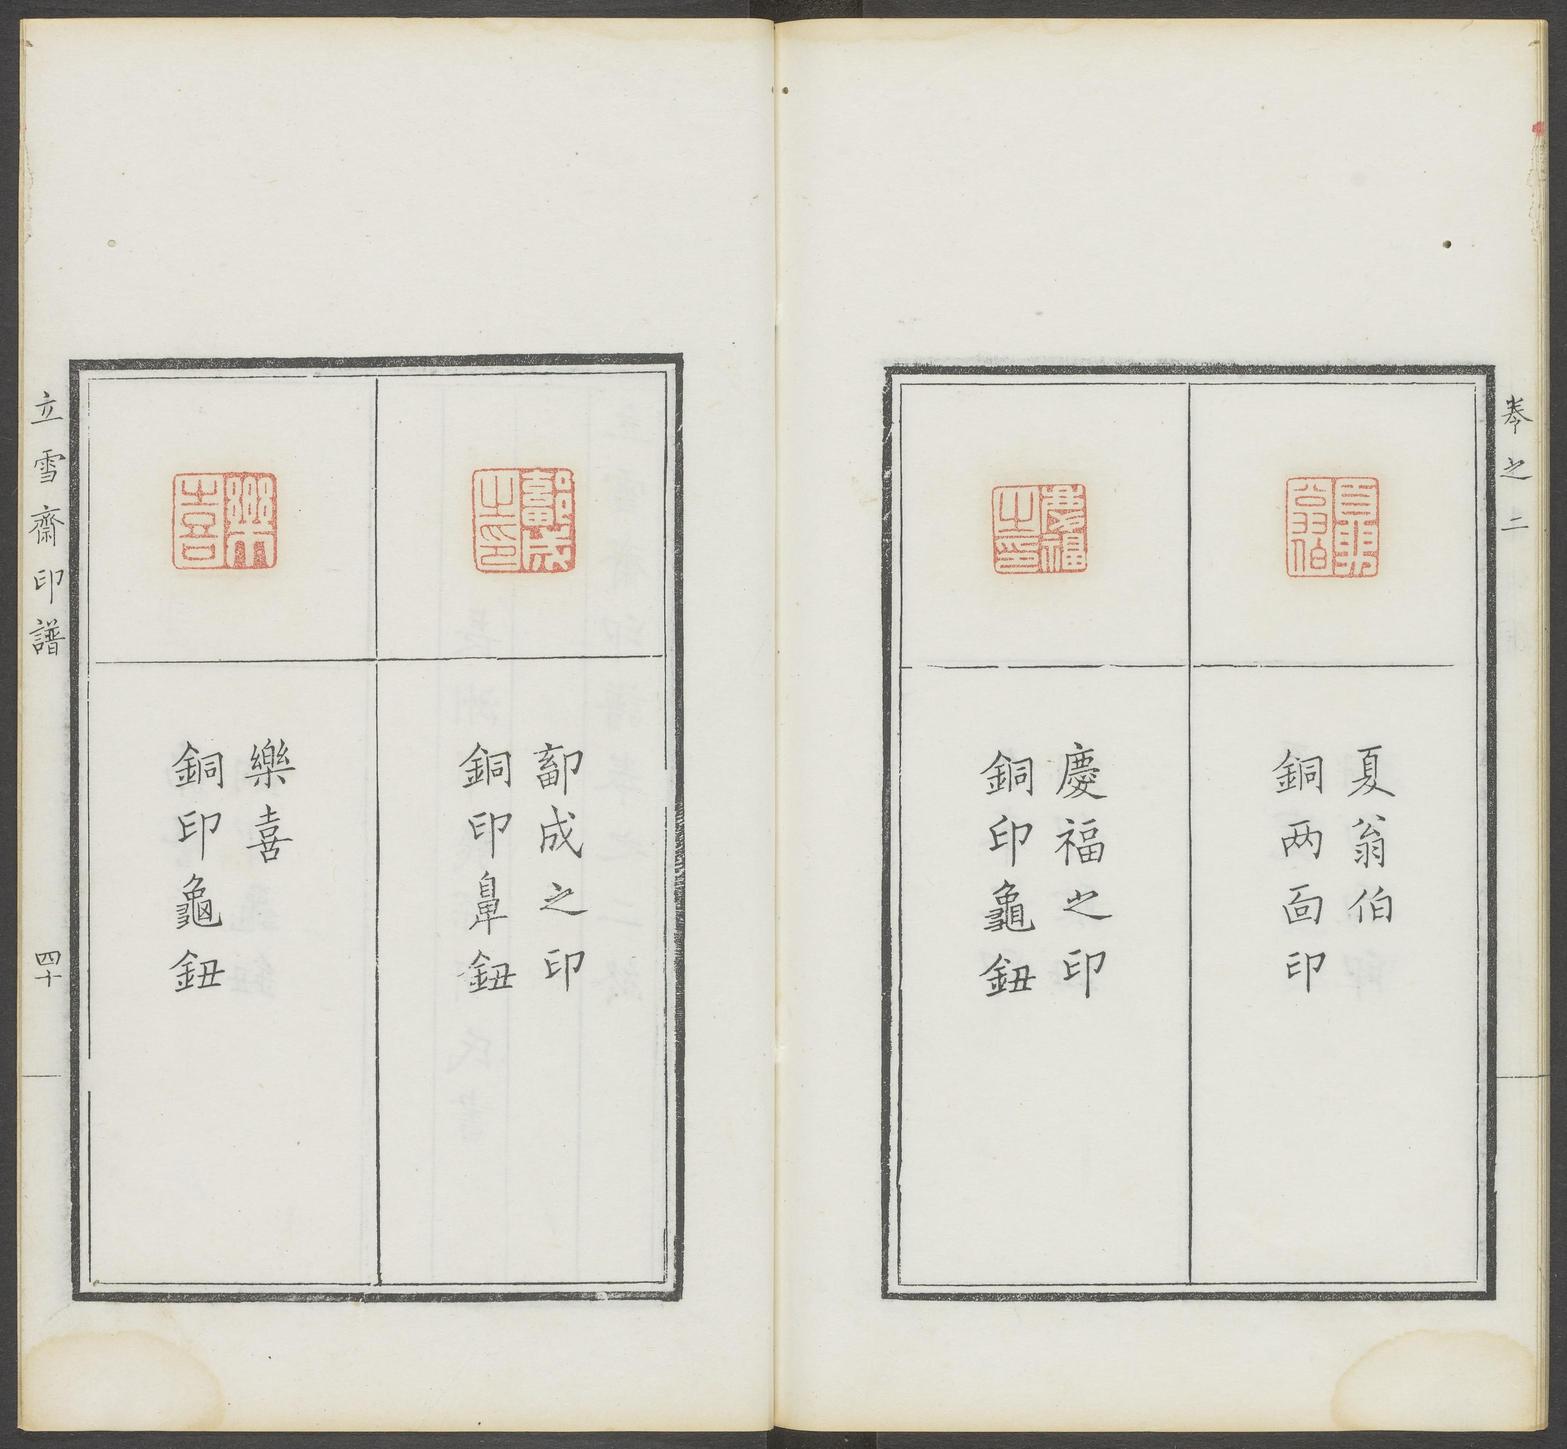 卷之二
夏翁伯
銅两面印
慶福之印
銅印龜鈕
鄐成之印
銅印鼻鈕
樂喜
銅印龜鈕
立雪齋印譜
四十